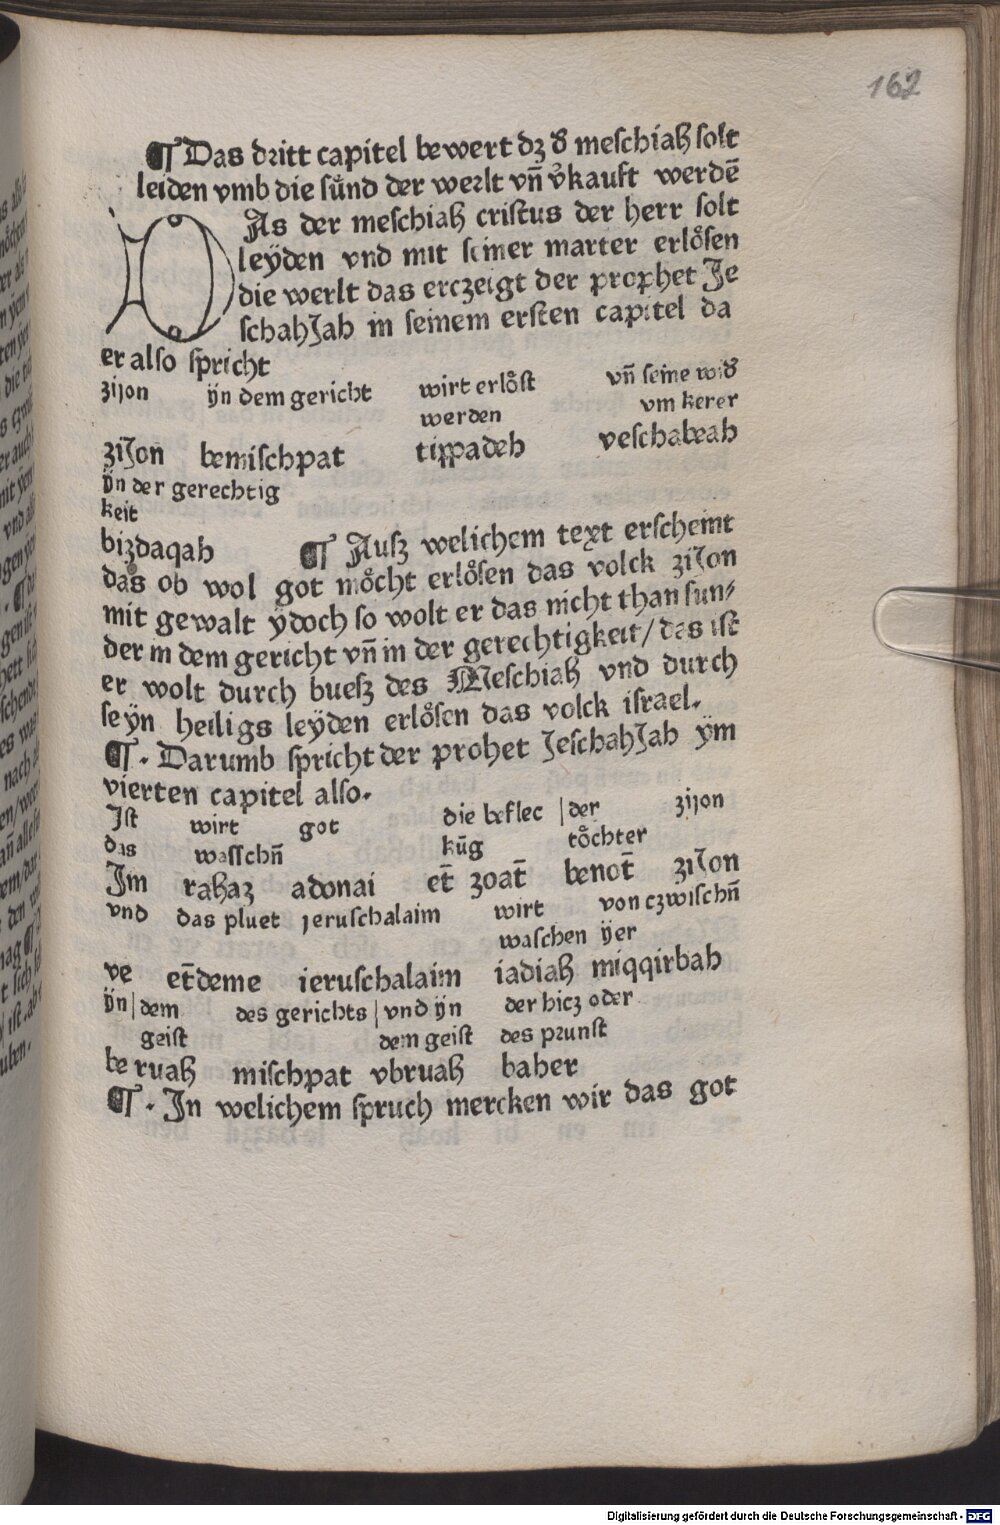 162
¶ Das dritt capitel bewert dz d̕ meschiaḣ solt
leiden vmb die sůnd der werlt vn̄ v̕kauft werdē
DAs der meschiaḣ cristus der herr solt
leÿden vnd mit seiner marter erlősen
die werlt das erczeigt der prophet Je
schahJah in seinem ersten capitel da
er also spricht
zijon ÿn dem gericht wirt erlőst vn̄ seine wid̕
werden vm kerer
ziJon bemischpat tippadeh veschabeah
ÿn der gerechtig
keit
bizdaqah ¶ Ausz welichem text erscheint
das ob wol got mőcht erlősen das volck ziJon
mit gewalt ÿdoch so wolt er das nicht than sun⸗
der in dem gericht vn̄ in der gerechtigkeit/ das ist
er wolt durch buesz des Meschiaḣ vnd durch
seÿn heiligs leÿden erlősen das volck israel.
¶. Darumb spricht der prohet JeschahJah ÿm
vierten capitel also.
Jst wirt got die beflec |der zijon
das wasschn̄ kūg tőchter
Jm rahaz adonai et̄ zoat̄ benot̄ ziJon
vnd das pluet jeruschalaim wirt von czwischn̄
waschen ÿer
ve et̄deme ieruschalaim iadiaḣ miqqirbah
ÿn|dem des gerichts|vnd ÿn der hicz oder
geist dem geist des prunst
be ruaḣ mischpat vbruaḣ baher
¶. Jn welichem spruch mercken wir das got
Digitalisierung gefördert durch die Deutsche Forschungsgemeinschaft - DFG